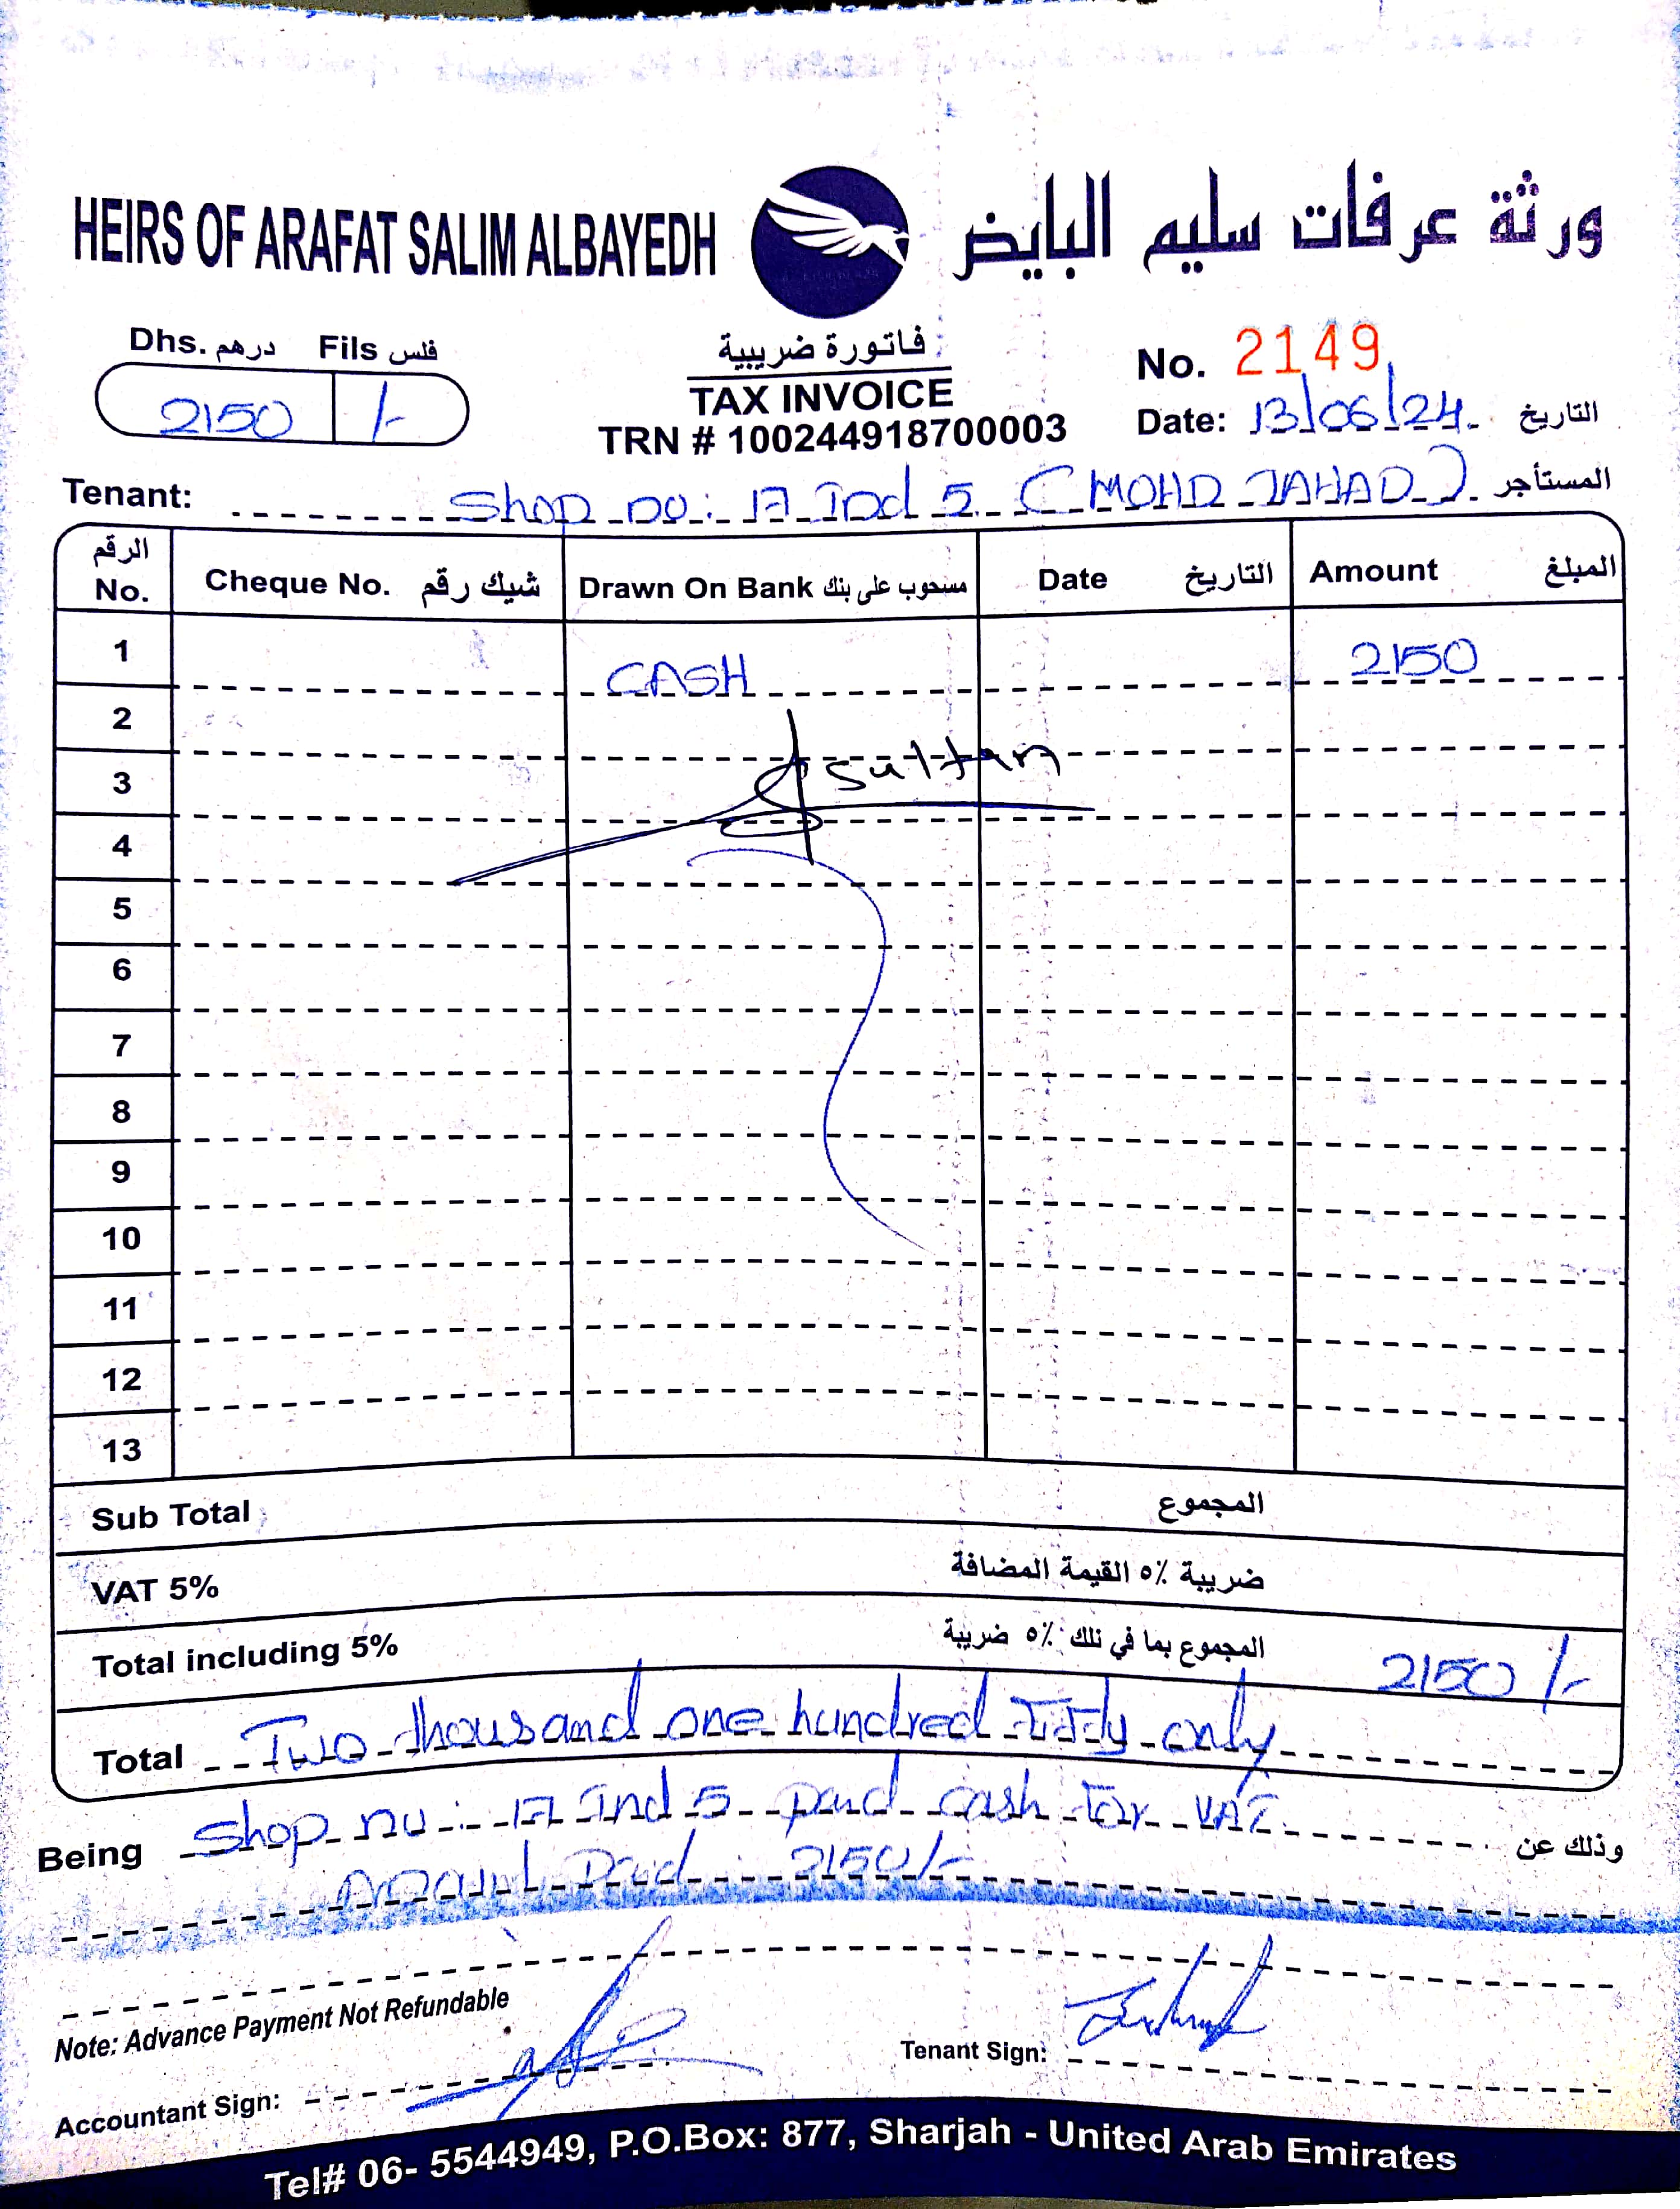 HEIRS OF ARAFAT SALIM ALBAYEDH
ورثة عرفات سليم البايض
Dhs. درهم Fils فلس
2150 /-
فاتورة ضريبية
TAX INVOICE
TRN # 100244918700003
No. 2149
Date: 13/06/24 التاريخ
Tenant: Shop no: 17 Ind 5 (MOHD JAHAD) المستأجر
الرقم No. Cheque No. شيك رقم Drawn On Bank مسحوب على بنك Date التاريخ Amount المبلغ
1 CASH 2150
2
3 Sultan
4
5
6
7
8
9
10
11
12
13
Sub Total المجموع
VAT 5% ضريبة ٥٪ القيمة المضافة
Total including 5% المجموع بما في ذلك ٥٪ ضريبة 2150/-
Total Two thousand one hundred Fifty only
Being Shop no: 17 Ind 5 paid cash for VAT وذلك عن
Amount Paid 2150/-
Note: Advance Payment Not Refundable
Accountant Sign:
Tenant Sign:
Tel# 06- 5544949, P.O.Box: 877, Sharjah - United Arab Emirates